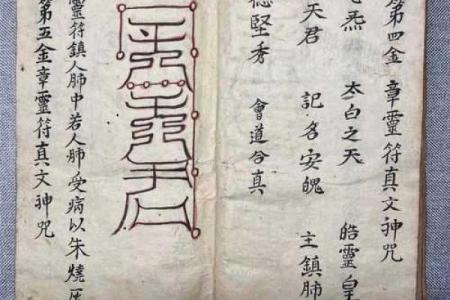 第四金章靈符真文神咒
炁 太白之天 皓靈皇
天君 記名安魄 主鎮肺
德堅秀 會道合真
靈符鎮人肺中若人肺受病以朱燒灰
第五金章靈符真文神咒